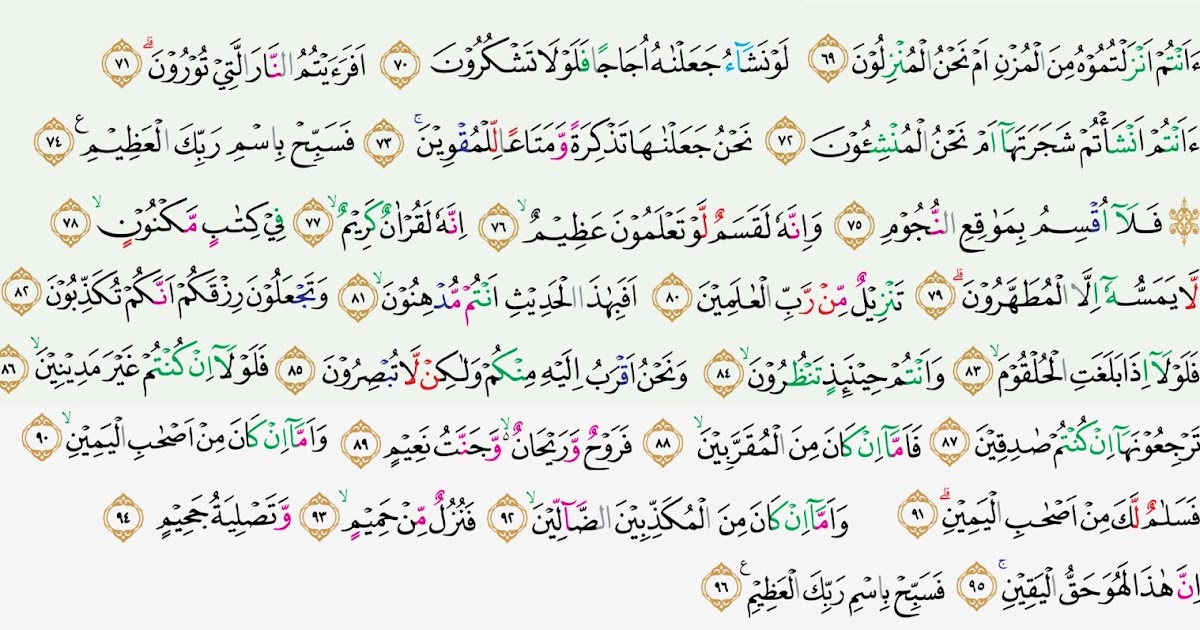 ءَاَنْتُمْ اَنْزَلْتُمُوْهُ مِنَ الْمُزْنِ اَمْ نَحْنُ الْمُنْزِلُوْنَ ٦٩ لَوْ نَشَاۤءُ جَعَلْنٰهُ اُجَاجًا فَلَوْلَا تَشْكُرُوْنَ ٧٠ اَفَرَءَيْتُمُ النَّارَ الَّتِيْ تُوْرُوْنَۗ ٧١
ءَاَنْتُمْ اَنْشَأْتُمْ شَجَرَتَهَآ اَمْ نَحْنُ الْمُنْشِـُٔوْنَ ٧٢ نَحْنُ جَعَلْنٰهَا تَذْكِرَةً وَّمَتَاعًا لِّلْمُقْوِيْنَۚ ٧٣ فَسَبِّحْ بِاسْمِ رَبِّكَ الْعَظِيْمِ ࣖ ٧٤
۞ فَلَآ اُقْسِمُ بِمَوٰقِعِ النُّجُوْمِ ٧٥ وَاِنَّهٗ لَقَسَمٌ لَّوْ تَعْلَمُوْنَ عَظِيْمٌۙ ٧٦ اِنَّهٗ لَقُرْاٰنٌ كَرِيْمٌۙ ٧٧ فِيْ كِتٰبٍ مَّكْنُوْنٍۙ ٧٨
لَّا يَمَسُّهٗٓ اِلَّا الْمُطَهَّرُوْنَۗ ٧٩ تَنْزِيْلٌ مِّنْ رَّبِّ الْعٰلَمِيْنَ ٨٠ اَفَبِهٰذَا الْحَدِيْثِ اَنْتُمْ مُّدْهِنُوْنَۙ ٨١ وَتَجْعَلُوْنَ رِزْقَكُمْ اَنَّكُمْ تُكَذِّبُوْنَ ٨٢
فَلَوْلَآ اِذَا بَلَغَتِ الْحُلْقُوْمَۙ ٨٣ وَاَنْتُمْ حِيْنَىِٕذٍ تَنْظُرُوْنَۙ ٨٤ وَنَحْنُ اَقْرَبُ اِلَيْهِ مِنْكُمْ وَلٰكِنْ لَّا تُبْصِرُوْنَ ٨٥ فَلَوْلَآ اِنْ كُنْتُمْ غَيْرَ مَدِيْنِيْنَۙ ٨٦
تَرْجِعُوْنَهَآ اِنْ كُنْتُمْ صٰدِقِيْنَ ٨٧ فَاَمَّآ اِنْ كَانَ مِنَ الْمُقَرَّبِيْنَۙ ٨٨ فَرَوْحٌ وَّرَيْحَانٌ ەۙ وَّجَنَّتُ نَعِيْمٍ ٨٩ وَاَمَّآ اِنْ كَانَ مِنْ اَصْحٰبِ الْيَمِيْنِۙ ٩٠
فَسَلٰمٌ لَّكَ مِنْ اَصْحٰبِ الْيَمِيْنِۗ ٩١ وَاَمَّآ اِنْ كَانَ مِنَ الْمُكَذِّبِيْنَ الضَّاۤلِّيْنَۙ ٩٢ فَنُزُلٌ مِّنْ حَمِيْمٍۙ ٩٣ وَّتَصْلِيَةُ جَحِيْمٍ ٩٤
اِنَّ هٰذَا لَهُوَ حَقُّ الْيَقِيْنِۚ ٩٥ فَسَبِّحْ بِاسْمِ رَبِّكَ الْعَظِيْمِ ࣖ ٩٦